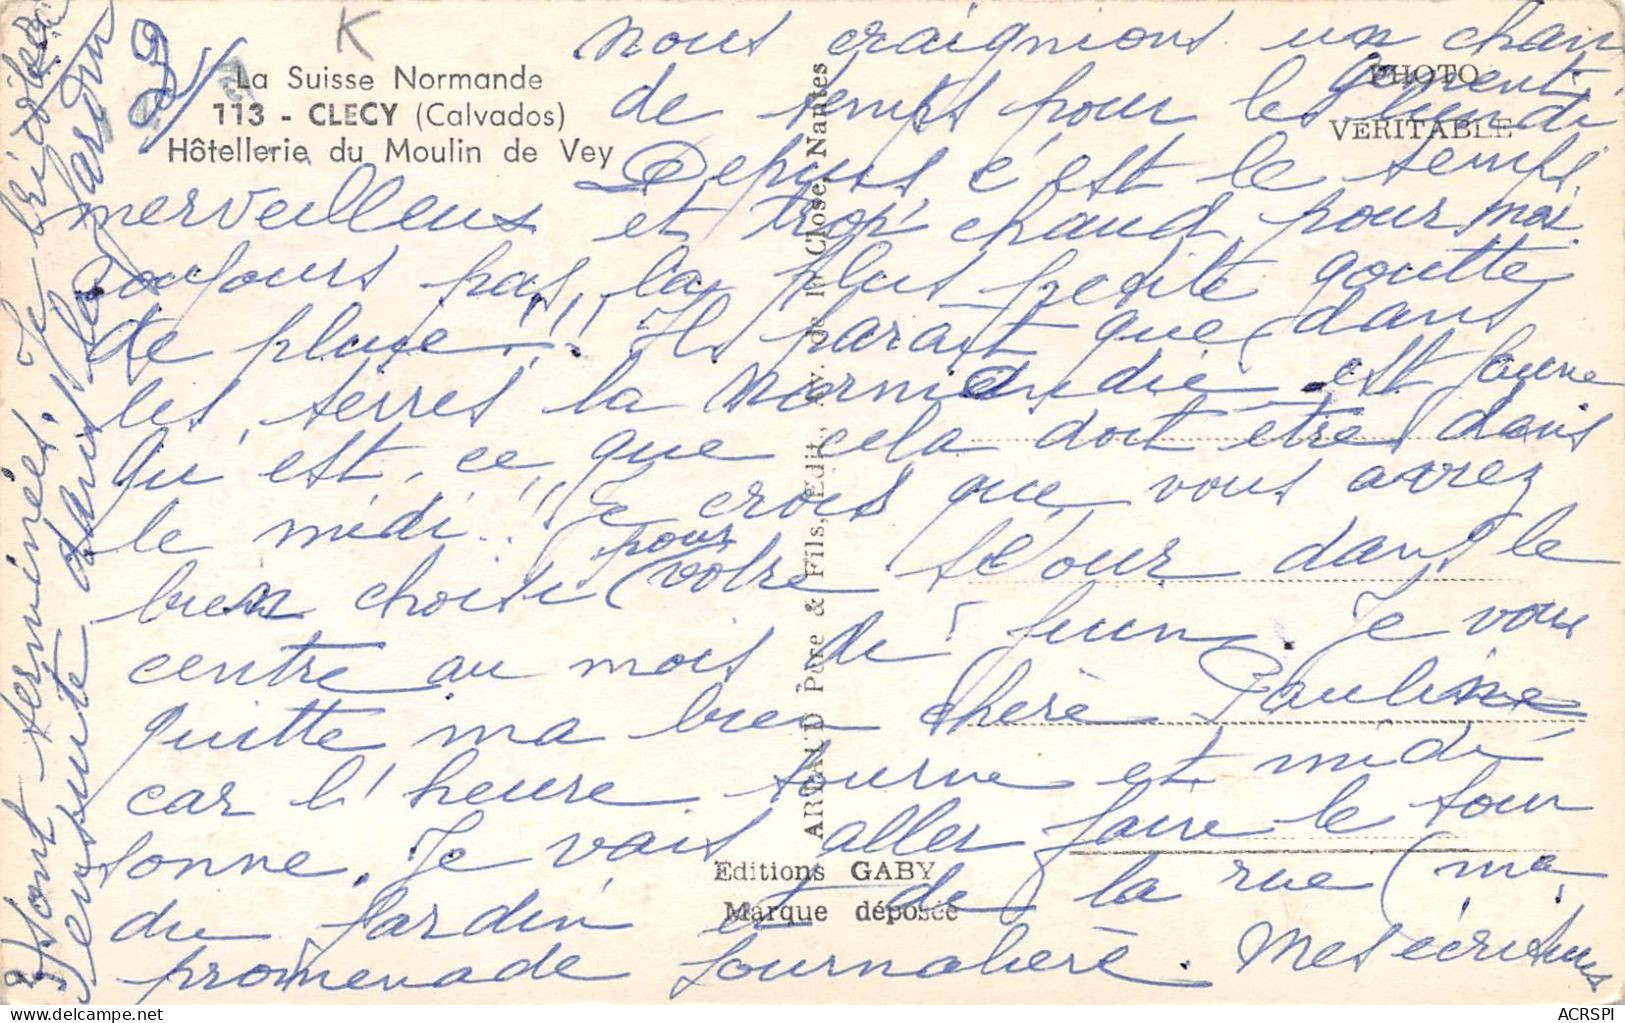 K
2)
La Suisse Normande
113 - CLECY (Calvados)
Hôtellerie du Moulin de Vey
PHOTO
VERITABLE
ARTAUD Père & Fils, Edit., Av. de la Close, Nantes
Editions GABY
Marque déposée
nous craignions un chan
gement
de temps pour les lundi
Depuis c'est le temps
merveilleux et trop chaud pour moi
toujours pas la plus petite goutte
de pluie!!! Il parait que dans
les terres la Normandie est jaune
Qu'est, ce que cela doit être dans
le midi!! Je crois que vous avez
bien choisi pour votre séjour dans le
centre au mois de Juin. Je vous
quitte ma bien chère Pauline
car l'heure tourne et midi
sonne. Je vais aller faire le tour
du Jardin et de la rue (ma
promenade journalière. Mes écritures
sont terminées. Je
ensuite dans le jardin
ACRSPI